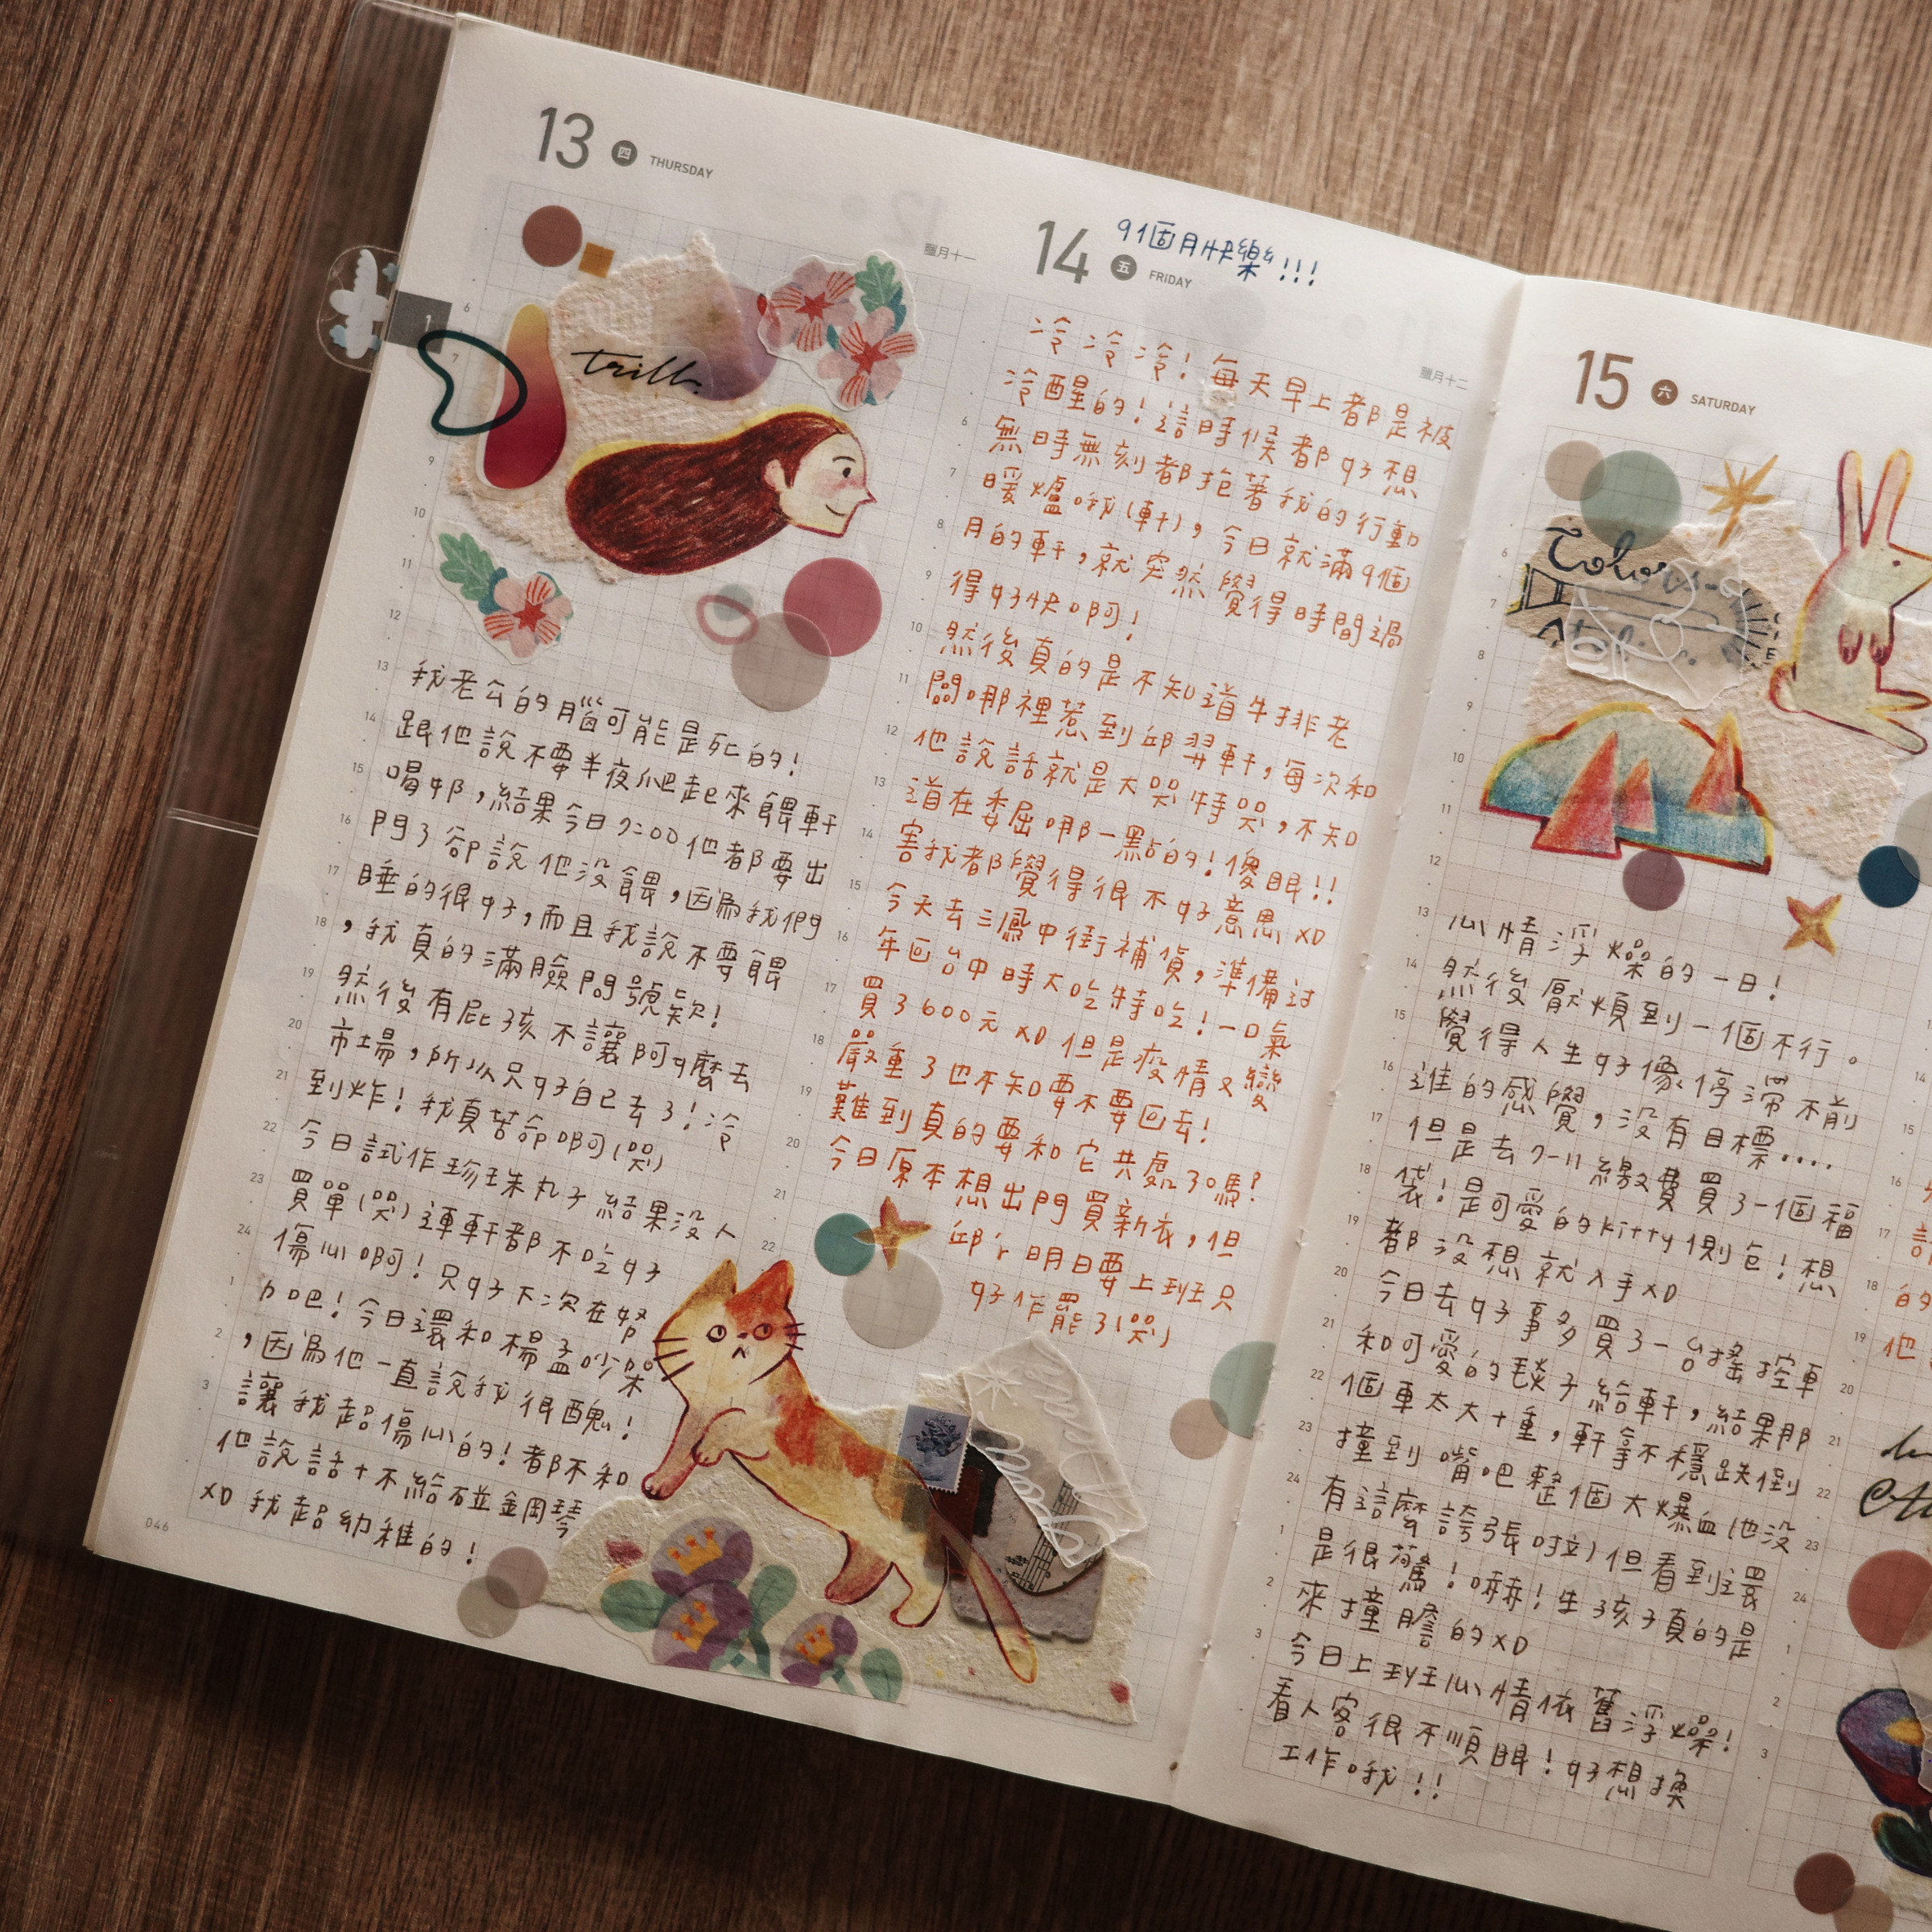 13 四 THURSDAY
臘月十一
1
trill
我老公的腦可能是死的!
跟他說不要半夜爬起來餵軒
喝ㄋㄟ,結果今日7:00他都要出
門了卻說他沒餵,因為我們
睡的很好,而且我說不要餵
,我真的滿臉問號欸!
然後有屁孩不讓阿嬤去
市場,所以只好自己去了!冷
到炸!我真苦命啊(哭)
今日試作珍珠丸子結果沒人
買單(哭)連軒都不吃好
傷心啊!只好下次在努
力吧!今日還和楊孟吵架
,因為他一直說我很醜!
讓我超傷心的!都不和
他說話+不給碰鋼琴
XD 我超幼稚的!
046
14 五 FRIDAY
9個月快樂!!!
臘月十二
冷冷冷!每天早上都是被
冷醒的!這時候都好想
無時無刻都抱著我的行動
暖爐哦(軒),今日就滿9個
月的軒,就突然覺得時間過
得好快啊!
然後真的是不知道牛排老
闆哪裡惹到邱羿軒,每次和
他說話就是大哭特哭,不知
道在委屈哪一點的!傻眼!!
害我都覺得很不好意思XD
今天去三鳳中街補貨,準備過
年回台中時大吃特吃!一口氣
買了600元XD 但是疫情又變
嚴重了也不知要不要回去!
難到真的要和它共處了嗎?
今日原本想出門買新衣,但
邱ㄚ明日要上班只
好作罷了(哭)
15 六 SATURDAY
心情浮燥的一日!
然後厭煩到一個不行。
覺得人生好像停滯不前
進的感覺,沒有目標....
但是去7-11繳費買了一個福
袋!是可愛的kitty側包!想
都沒想就入手XD
今日去好事多買了一台搖控車
和可愛的毯子給軒,結果那
個車太大+重,軒拿不穩跌倒
撞到嘴吧整個大爆血(也沒
有這麼誇張啦)但看到還
是很驚!嚇!生孩子真的是
來撞膽的XD
今日上班心情依舊浮燥!
看人客很不順眼!好想換
工作哦!!